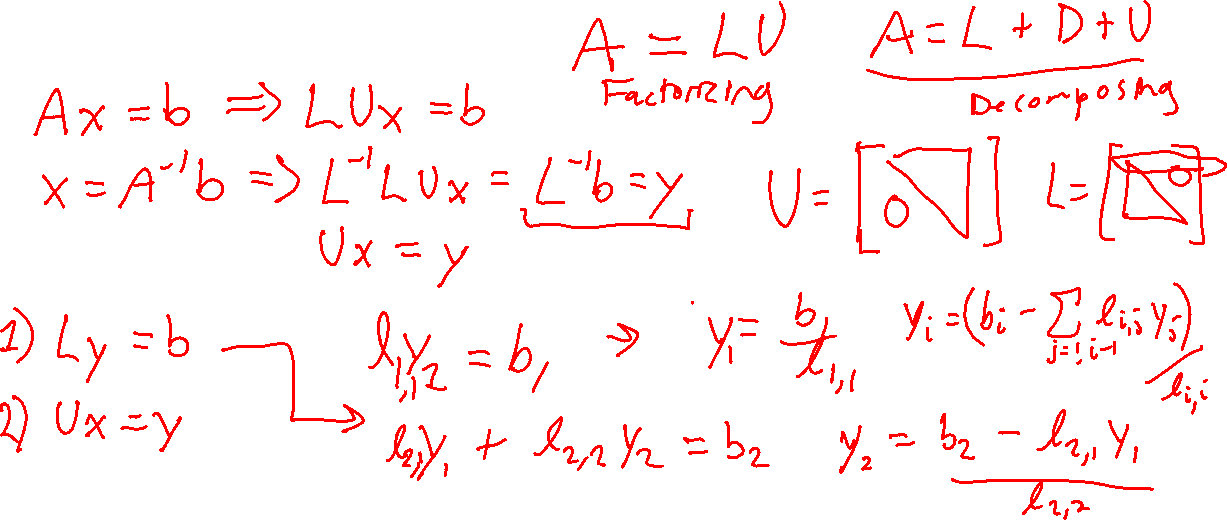 A = LU    A = L + D + U
Factorizing    Decomposing
Ax = b ⇒ LUx = b
x = A⁻¹b ⇒ L⁻¹LUx = L⁻¹b = y    U = [0]    L = [0]
Ux = y
1) Ly = b    l₁,₁y₂ = b₁ → y₁ = b₁/l₁,₁    yᵢ = (bᵢ - ∑_{j=1,i-1} lᵢ,ⱼ yⱼ)/lᵢ,ᵢ
2) Ux = y    l₂,₁y₁ + l₂,₂y₂ = b₂    y₂ = (b₂ - l₂,₁y₁)/l₂,₂